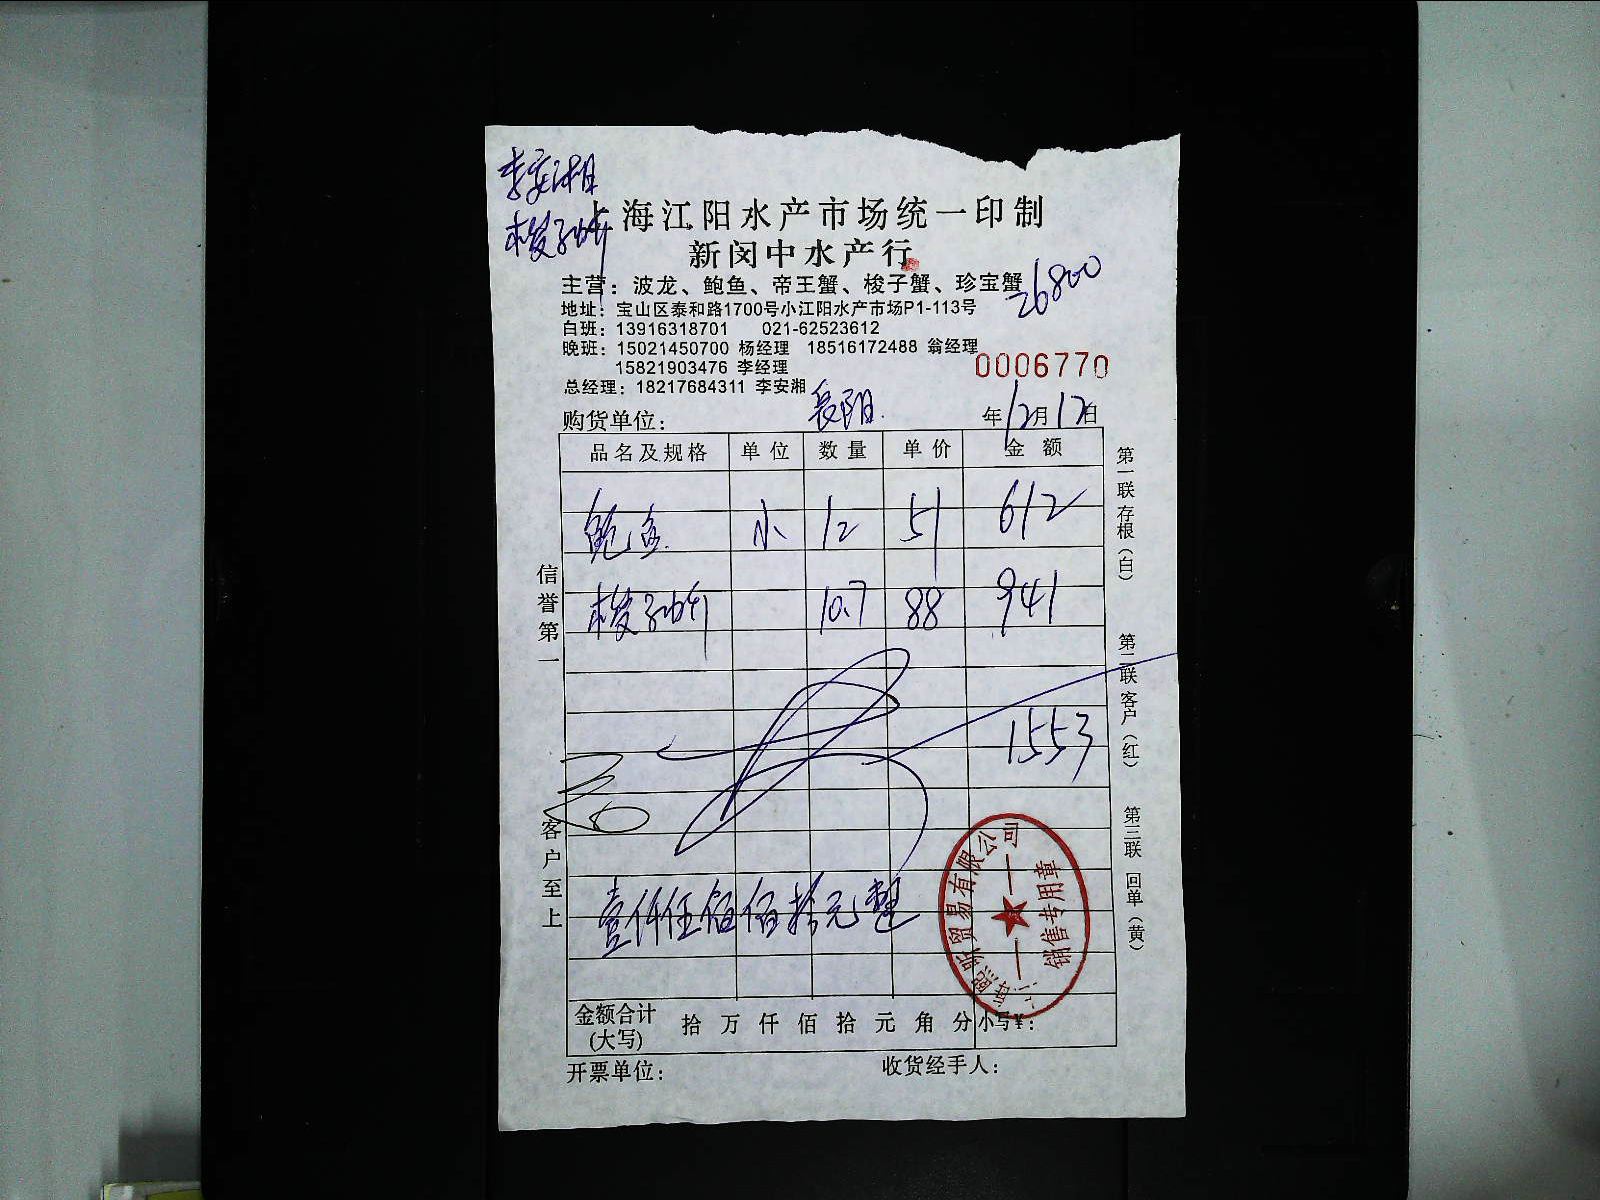 李安湘
梭子蚧
上海江阳水产市场统一印制
新闵中水产行
主营：波龙、鲍鱼、帝王蟹、梭子蟹、珍宝蟹
26800
地址：宝山区泰和路1700号小江阳水产市场P1-113号
白班：13916318701 021-62523612
晚班：15021450700 杨经理 18516172488 翁经理
15821903476 李经理
0006770
总经理：18217684311 李安湘
购货单位： 长阳 年12月17日
品名及规格 单位 数量 单价 金额
鲍鱼 小 12 51 612
梭子蚧 10.7 88 941
1553
壹仟伍佰伍拾元整
金额合计 (大写) 拾万仟佰拾元角分 小写¥：
开票单位： 收货经手人：
信誉第一
客户至上
第一联 存根（白）
第二联 客户（红）
第三联 回单（黄）
贸易有限公司
销售专用章